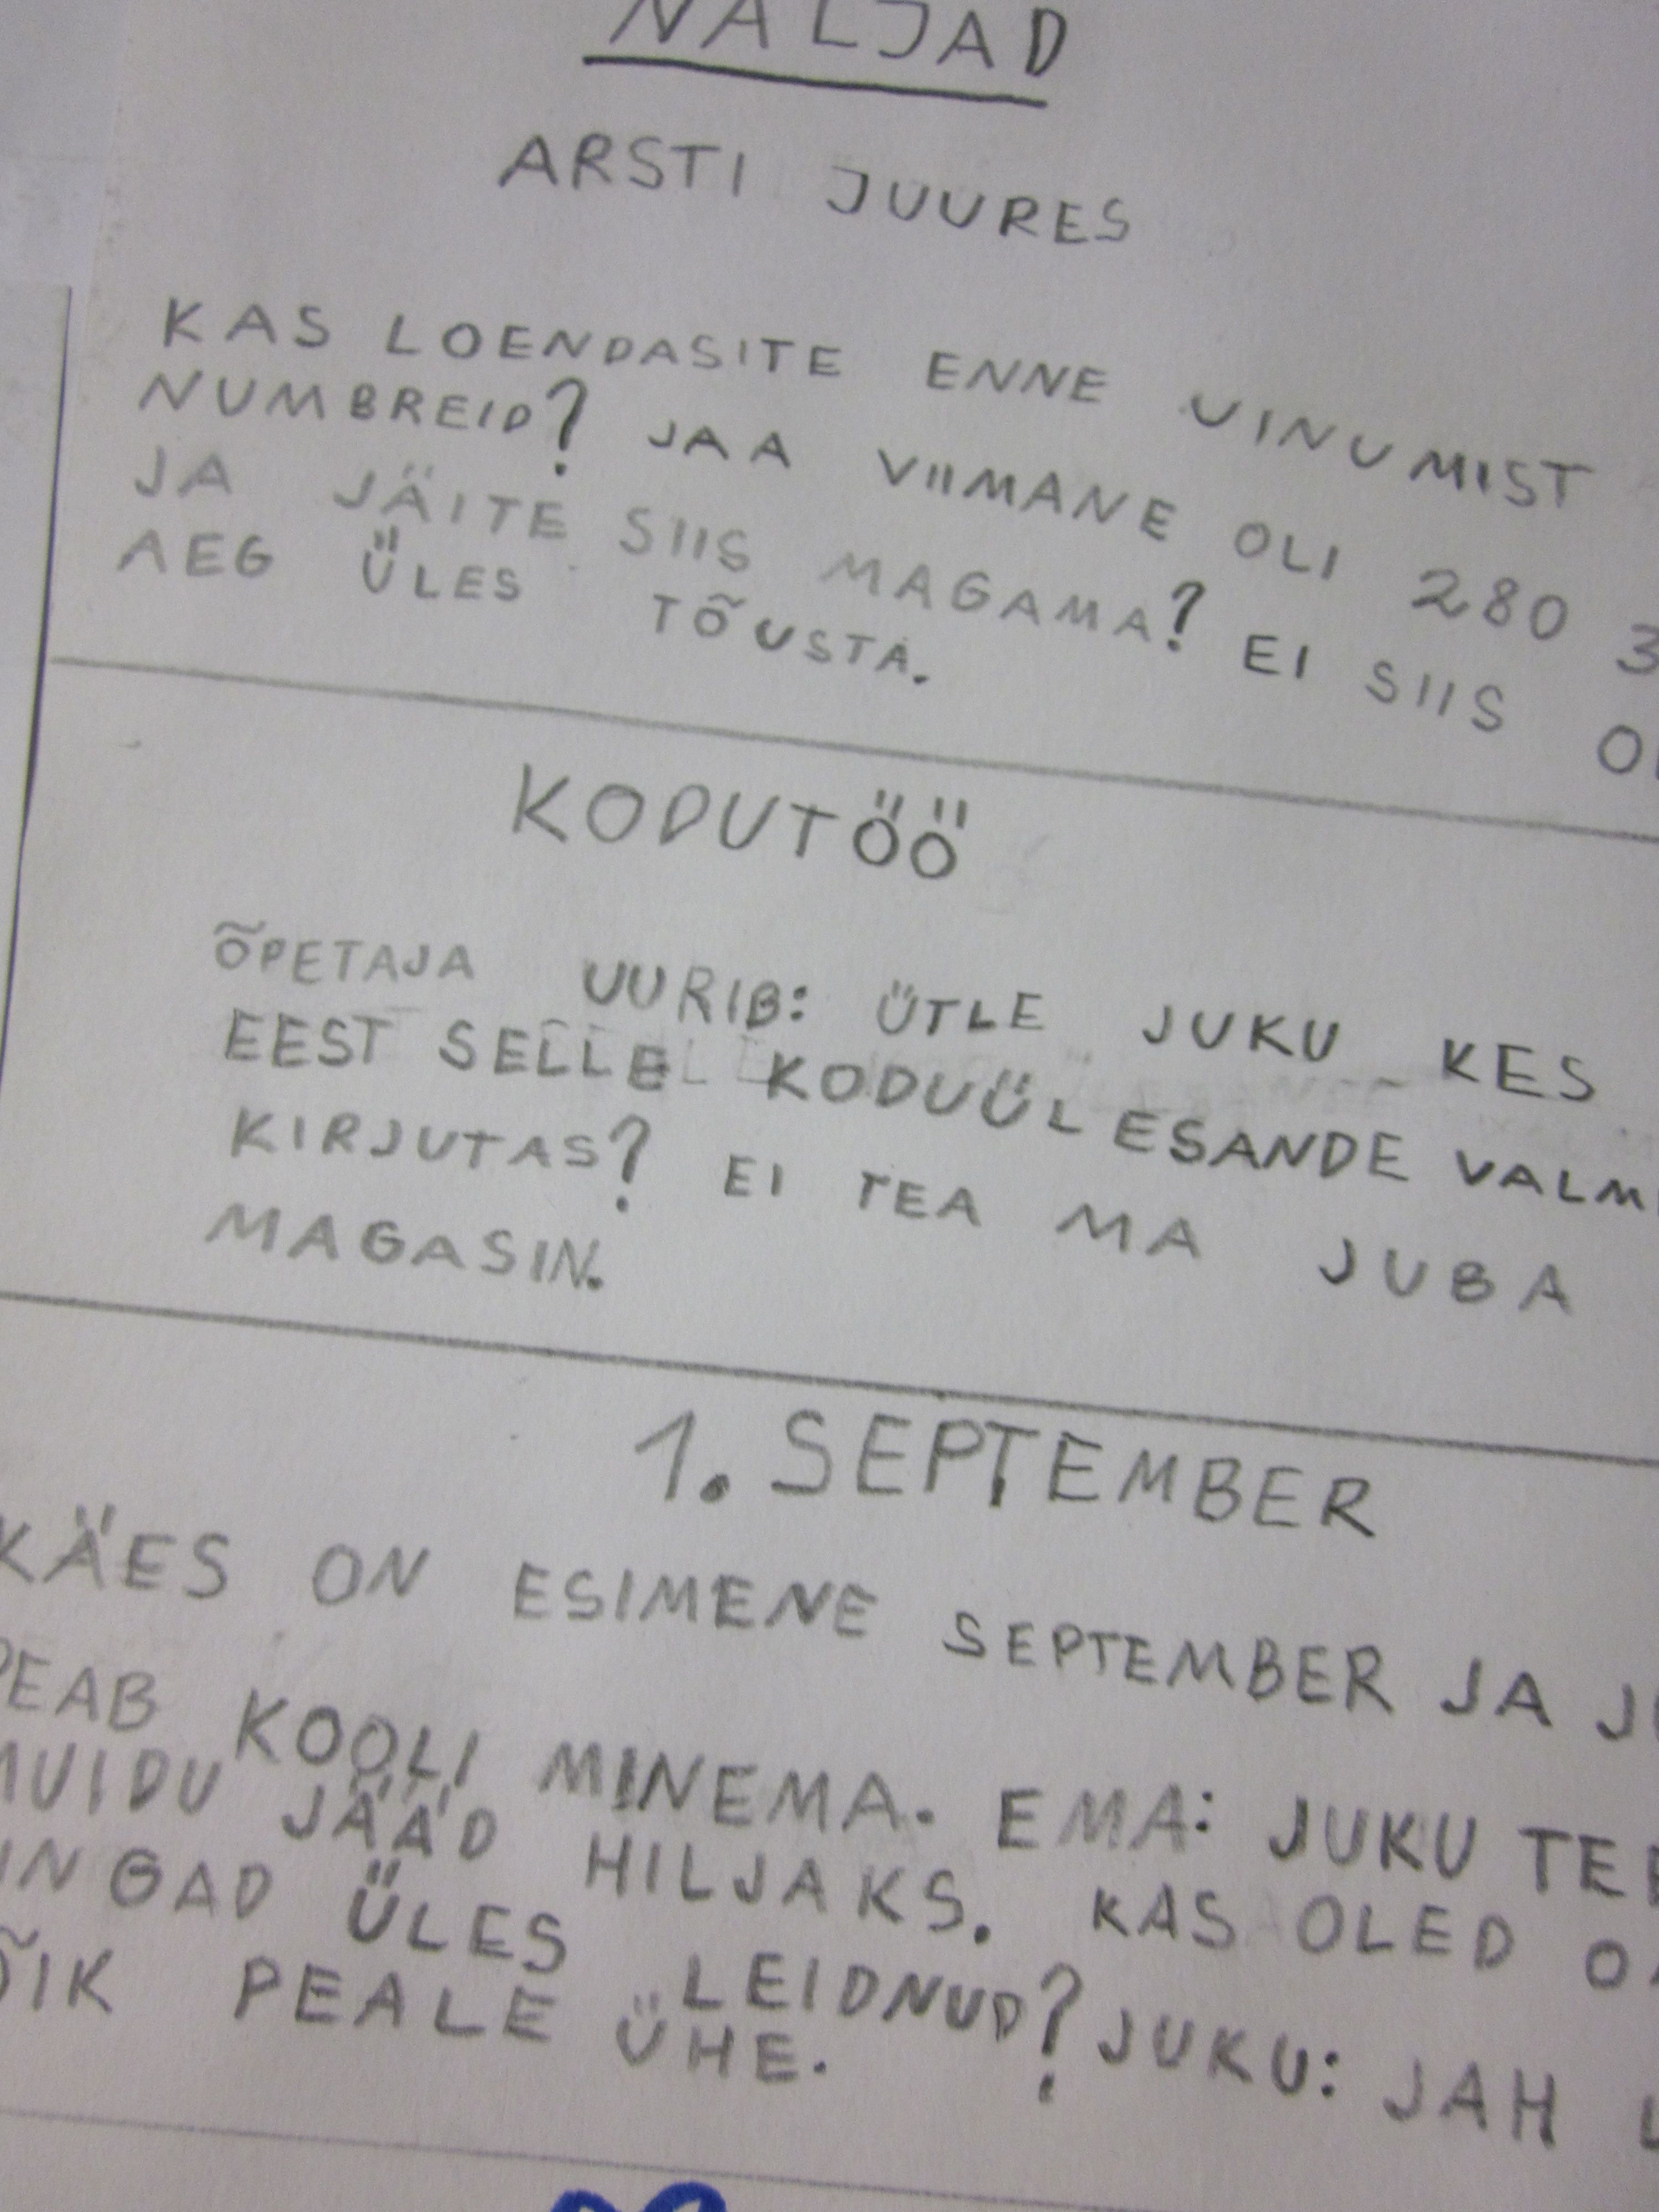 NALJAD
ARSTI JUURES
KAS LOENDASITE ENNE UINUMIST
NUMBREID? JAA VIIMANE OLI 280 3
JA JÄITE SIIS MAGAMA? EI SIIS OL
AEG ÜLES TÕUSTA.
KODUTÖÖ
ÕPETAJA UURIB: ÜTLE JUKU KES
EEST SELLE KODUÜLESANDE VALMI
KIRJUTAS? EI TEA MA JUBA
MAGASIN.
1. SEPTEMBER
KÄES ON ESIMENE SEPTEMBER JA JU
PEAB KOOLI MINEMA. EMA: JUKU TEE
MUIDU JÄÄD HILJAKS. KAS OLED OM
INGAD ÜLES LEIDNUD? JUKU: JAH L
ÕIK PEALE ÜHE.